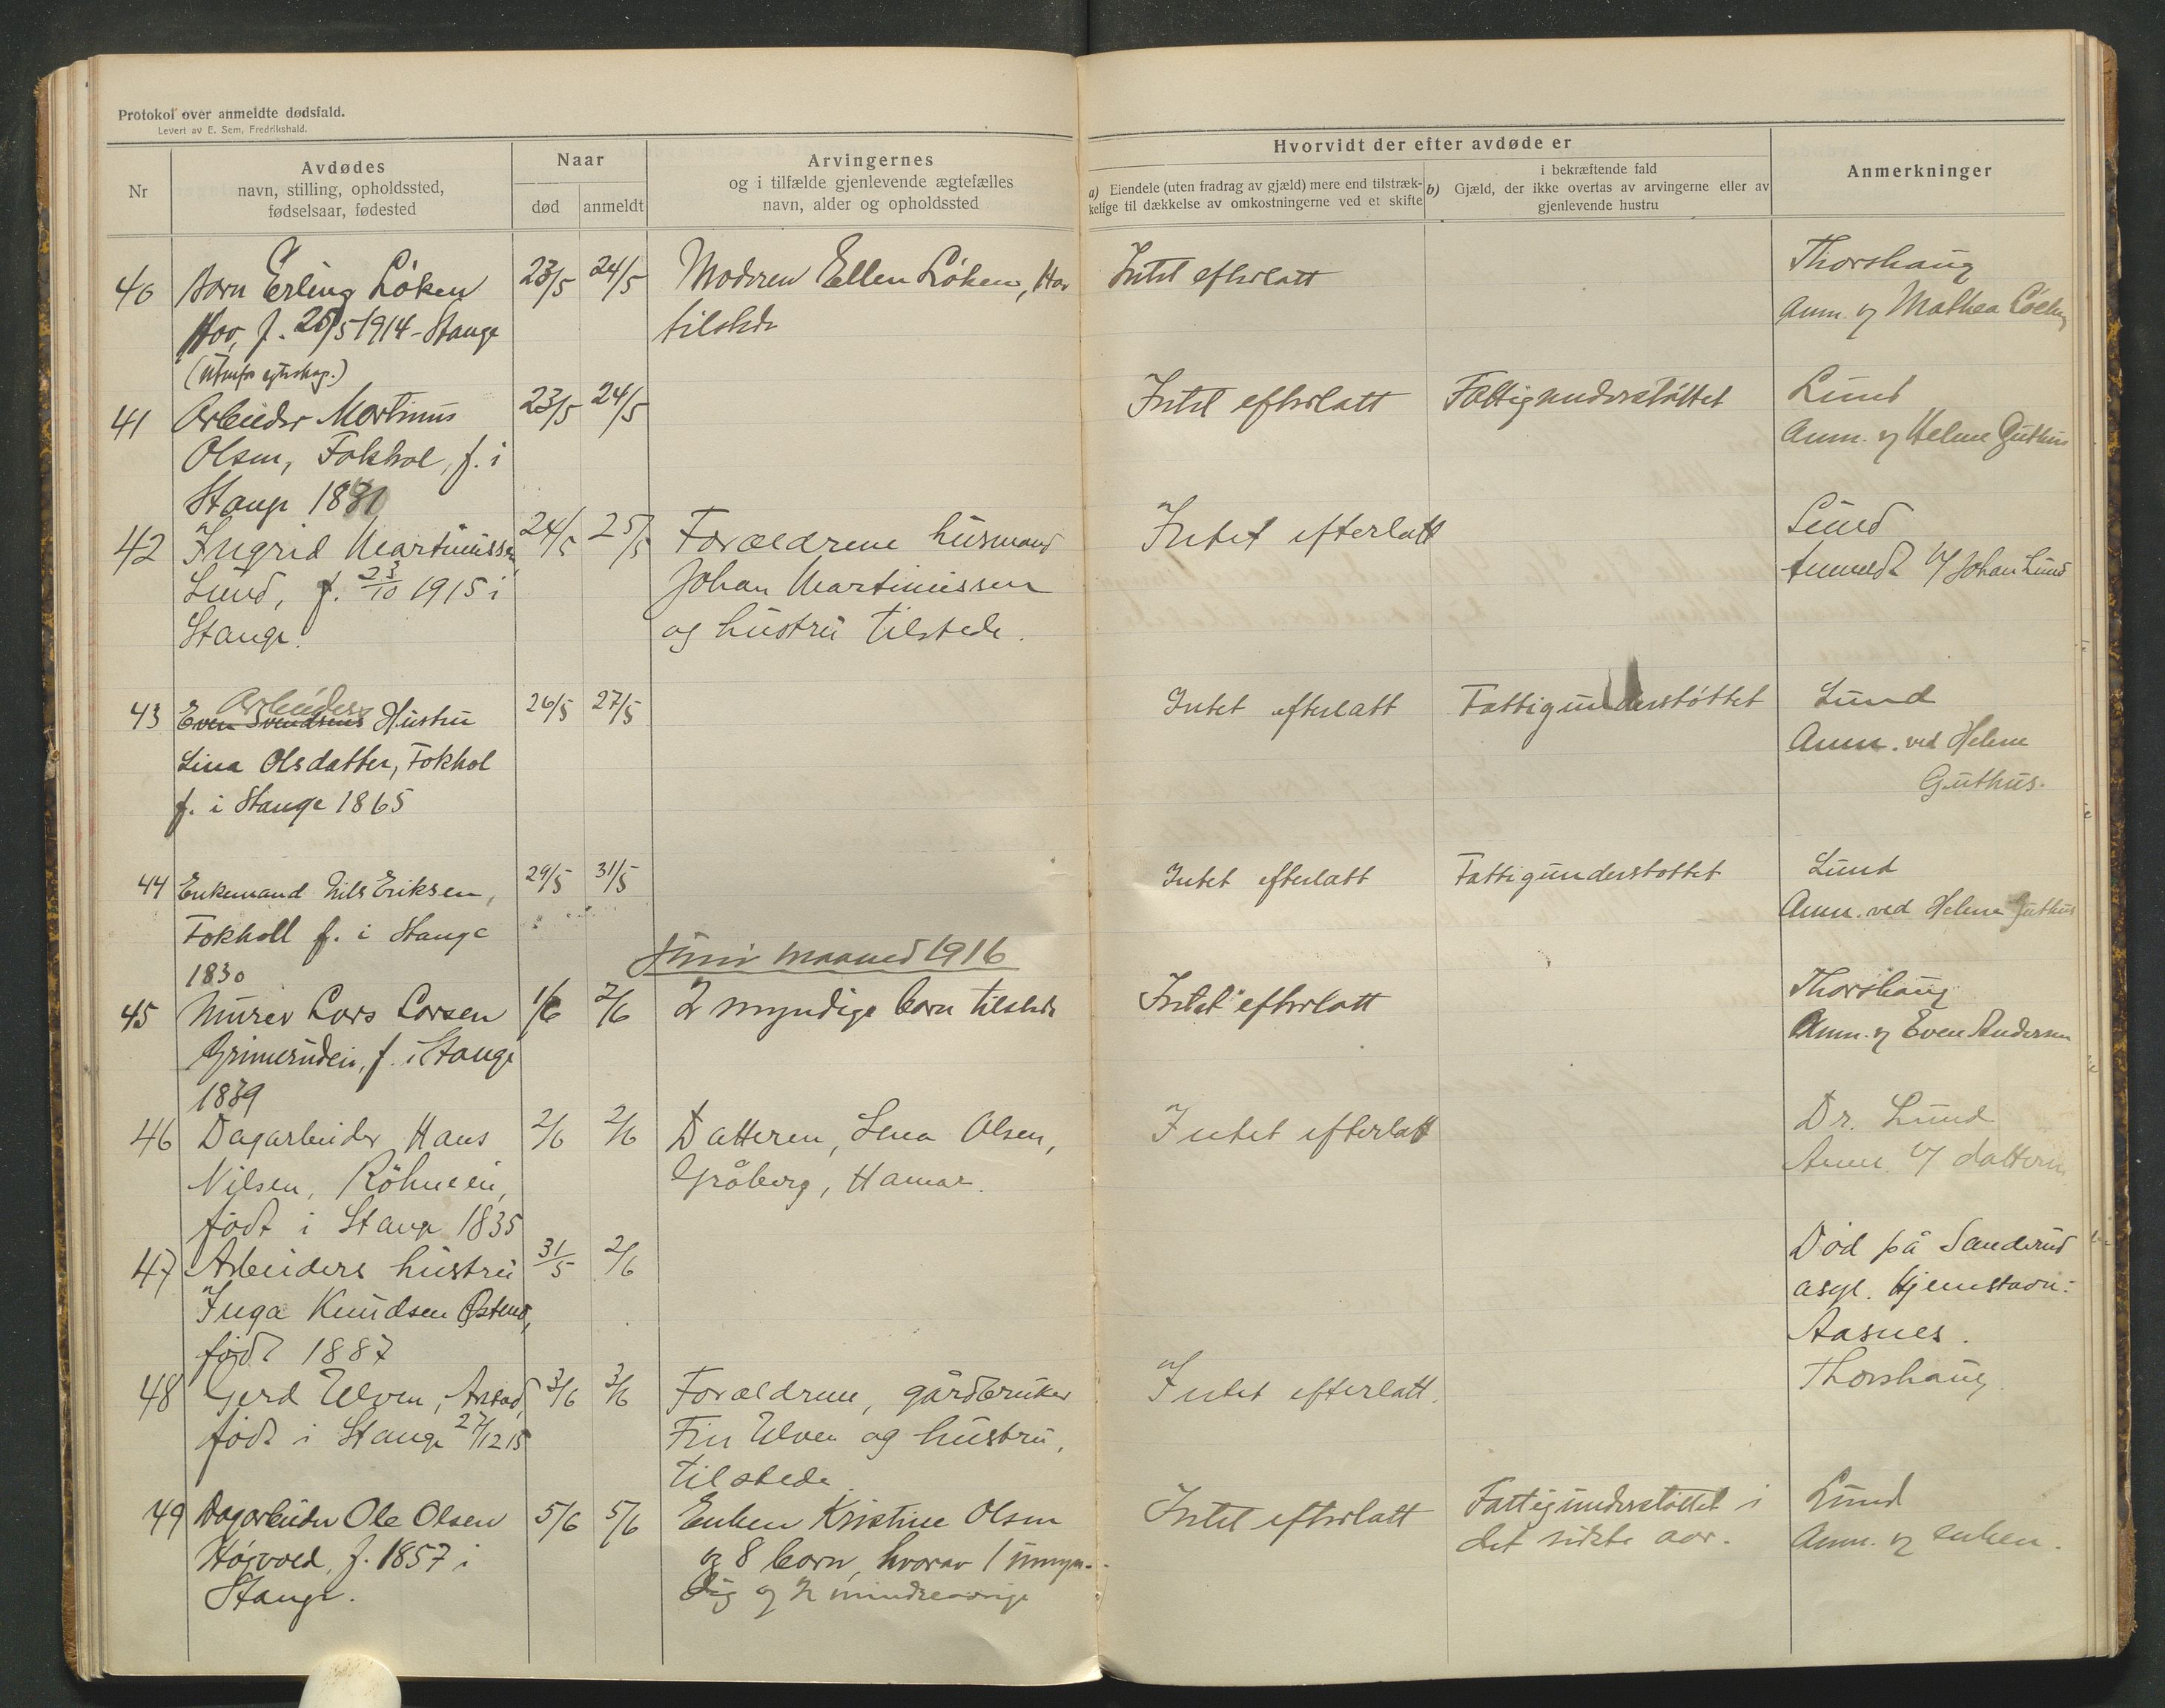 Protokol over anmeldte dødsfald.
Levert av E. Sem, Fredrikshald.
Nr
Avdødes
navn, stilling, opholdssted,
fødselsaar, fødested
Naar
død
anmeldt
Arvingernes
og i tilfælde gjenlevende ægtefælles
navn, alder og opholdssted
Hvorvidt der efter avdøde er
a) Eiendele (uten fradrag av gjæld) mere end tilstræk-
kelige til dækkelse av omkostningerne ved et skifte
i bekræftende fald
b) Gjæld, der ikke overtas av arvingerne eller av
gjenlevende hustru
Anmerkninger
40 Barn Erling Löken 23/5 24/5 Moderen Ellen Löken, Hov Intet efterlatt Thorshaug
Hov, f. 25/5 1914 - Stange tilstede Anm. v/ Mathea Löken
(utenfor egteskap.)
41 Arbeider Martinus 23/5 24/5 Intet efterlatt Fattigunderstøttet Lund
Olsen, Fokhol, f. i Anm. v/ Helene Guthus
Stange 1881
42 Ingrid Martinussen 24/5 25/5 Forældrene husmand Intet efterlatt Lund
Lund, f. 23/10 1915 i Johan Martinussen Anmeldt v/ Johan Lund
Stange. og hustru tilstede.
43 Arbeiders
Even Svendsens Hustru 26/5 27/5 Intet efterlatt Fattigunderstøttet Lund
Lina Olsdatter, Fokhol Anm. ved Helene
f. i Stange 1865 Guthus.
44 Enkemand Nils Eriksen, 29/5 31/5 Intet efterlatt Fattigunderstøttet Lund
Fokholl f. i Stange Anm. ved Helene Guthus
1830
Juni maaned 1916
45 Murer Lars Larsen 1/6 2/6 2 myndige barn tilstede Intet efterlatt Thorshaug
Grimerudei, f. i Stange Anm. v/ Even Andersen
1839
46 Dagarbeider Hans 2/6 2/6 Datteren, Lena Olsen, Intet efterlatt Dr. Lund
Nilsen, Gråberg, Hamar. Anm. v/ datteren
født i Stange 1835
47 Arbeiders hustru 31/5 2/6 Død på Sanderud
Inga Knudsen asyl. Hjemstavn:
født 1887 Aasnes.
48 Gerd Ulven, 3/6 3/6 Forældrene, gårdbruker Intet efterlatt. Thorshaug
født i Stange 27/12 15 Fin Ulven og hustru,
tilstede
49 Dagarbeider Ole Olsen 5/6 5/6 Enken Kristine Olsen Intet efterlatt Fattigunderstøttet i Lund
Højvold, f. 1857 i og 8 barn, hvorav 1 umyn- det sidste aar. Anm. v/ enken.
Stange. dig og 2 mindreaarige